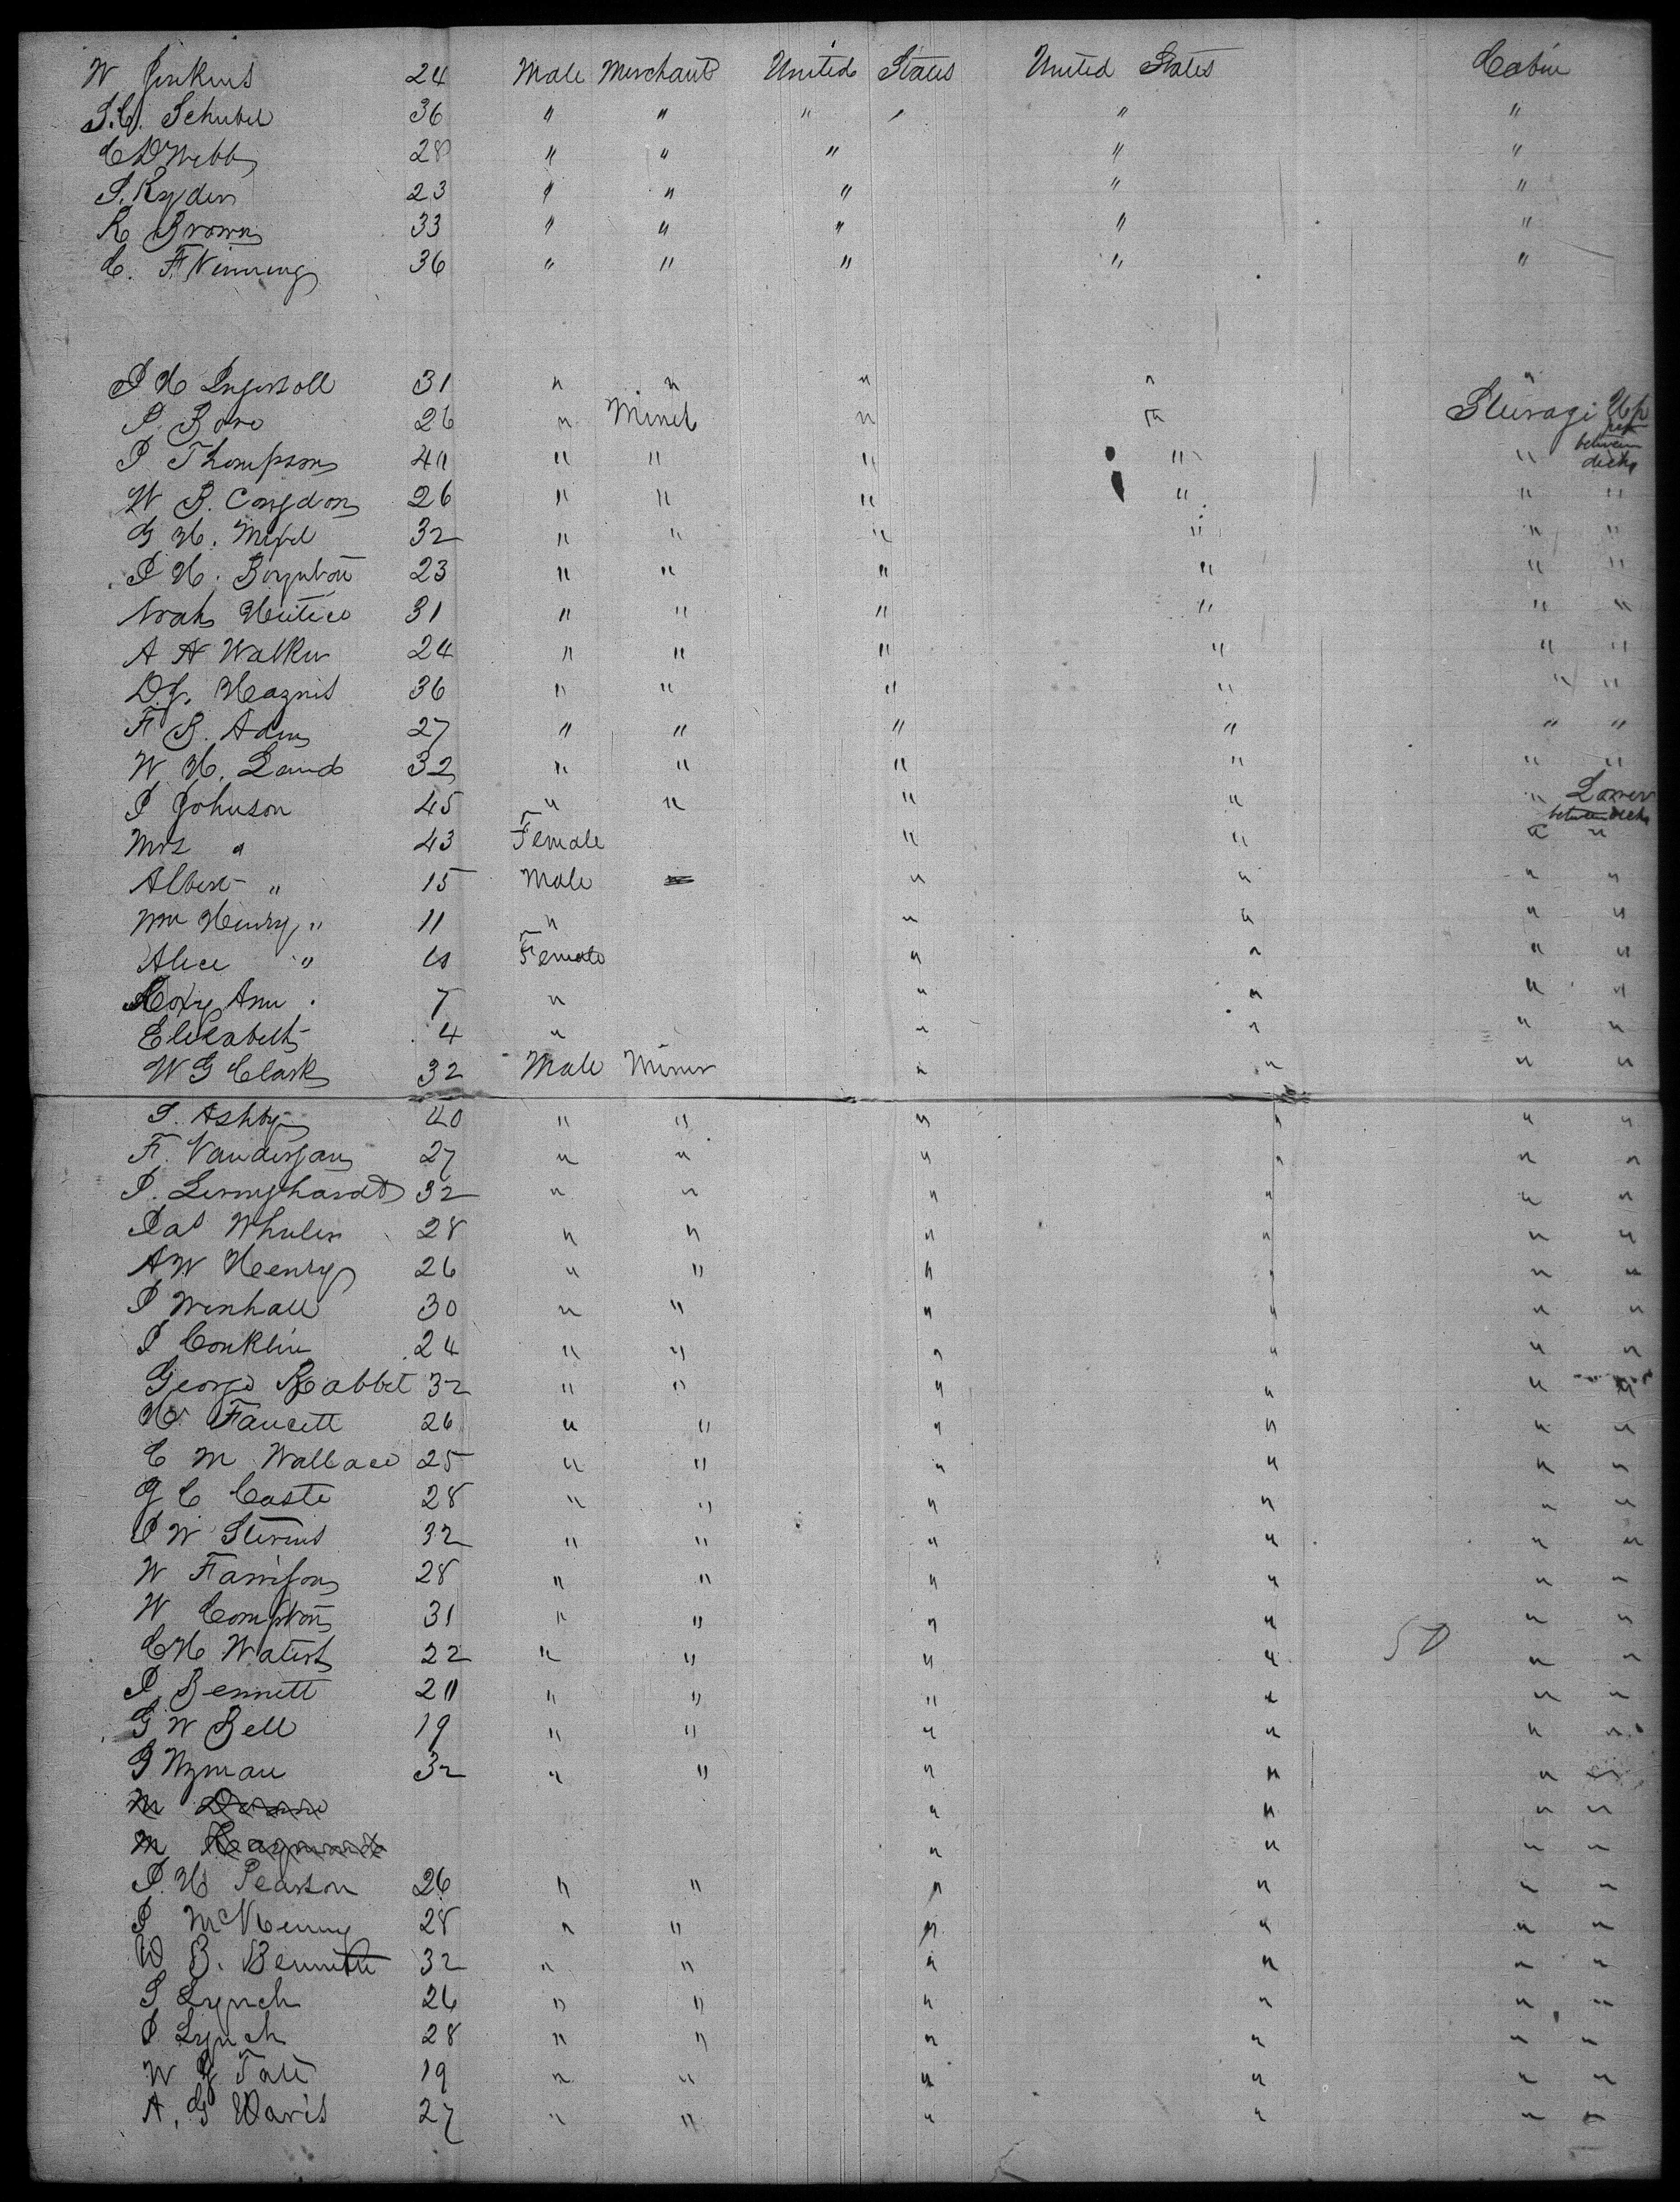 W Jenkins 24 Male Merchant United States United States Cabin
S.C. Schubel 36 " " " " " "
C D Webb 28 " " " " "
S. Ryder 23 " " " " "
R Brown 33 " " " " "
C. F. Vinning 36 " " " " "
J H Ingersoll 31 " " " " "
J. Bore 26 " Miner " " Steerage Upper
between
J Thompson 40 " " " " " decks
W B. Congdon 26 " " " " " "
G H. 32 " " " " " "
J H. Boynton 23 " " " " " "
Noah 31 " " " " " "
A A Walker 24 " " " " " "
36 " " " " " "
F B. Adams 27 " " " " " "
W H. Land 32 " " " " " "
J Johnson 45 " " " " " Lower
between decks
Mrs " 43 Female " " " "
Albert " 15 Male " " " "
Wm Henry " 11 " " " " "
Alice " 10 Female " " " "
Ann " 7 " " " " "
Elizabeth 4 " " " " "
W G Clark 32 Male Miner " " " "
S. Ashby 40 " " " " " "
F. Vandergan 27 " " " " " "
J. 32 " " " " " "
Jas Whalen 28 " " " " " "
A W Henry 26 " " " " " "
J Winhall 30 " " " " " "
J Conklin 24 " " " " " "
George Babbet 32 " " " " " "
H. Faucett 26 " " " " " "
C M Wallace 25 " " " " " "
G C Caste 28 " " " " " "
J W Stevens 32 " " " " " "
W 28 " " " " " "
W Compton 31 " " " " " "
50
C H Waters 22 " " " " " "
J. Bennett 20 " " " " " "
G W Bell 19 " " " " " "
G Wyman 32 " " " " " "
M " " " "
M " " " "
J. H Pearson 26 " " " " " "
J 28 " " " " " "
W B. Bennette 32 " " " " " "
S Lynch 26 " " " " " "
J Lynch 28 " " " " " "
W G Tate 19 " " " " " "
A. G Davis 27 " " " " " "